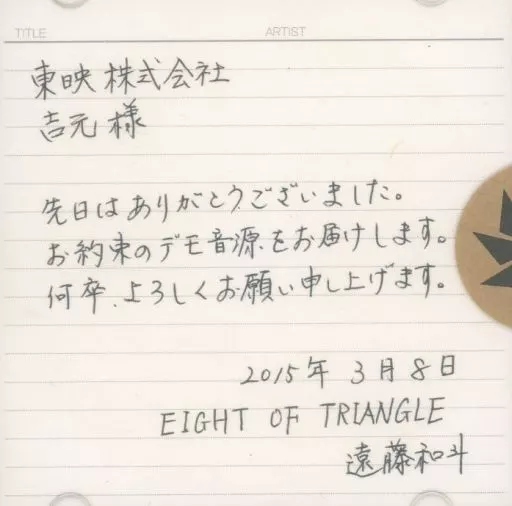 TITLE ARTIST
東映株式会社
吉元様
先日はありがとうございました。
お約束のデモ音源をお届けします。
何卒、よろしくお願い申し上げます。
2015年3月8日
EIGHT OF TRIANGLE
遠藤和斗